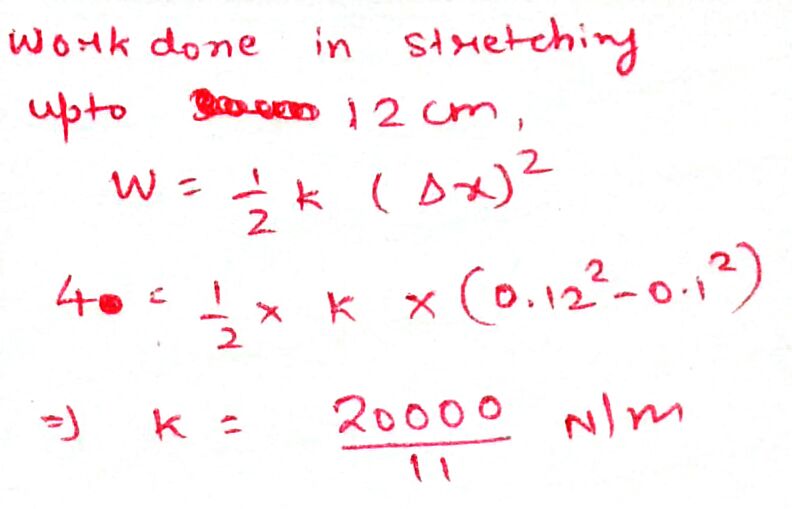 Work done in stretching
upto 12 cm,
W = 1/2 k (Δx)²
4 = 1/2 × k × (0.12² - 0.1²)
=> k = 20000/11 N/m